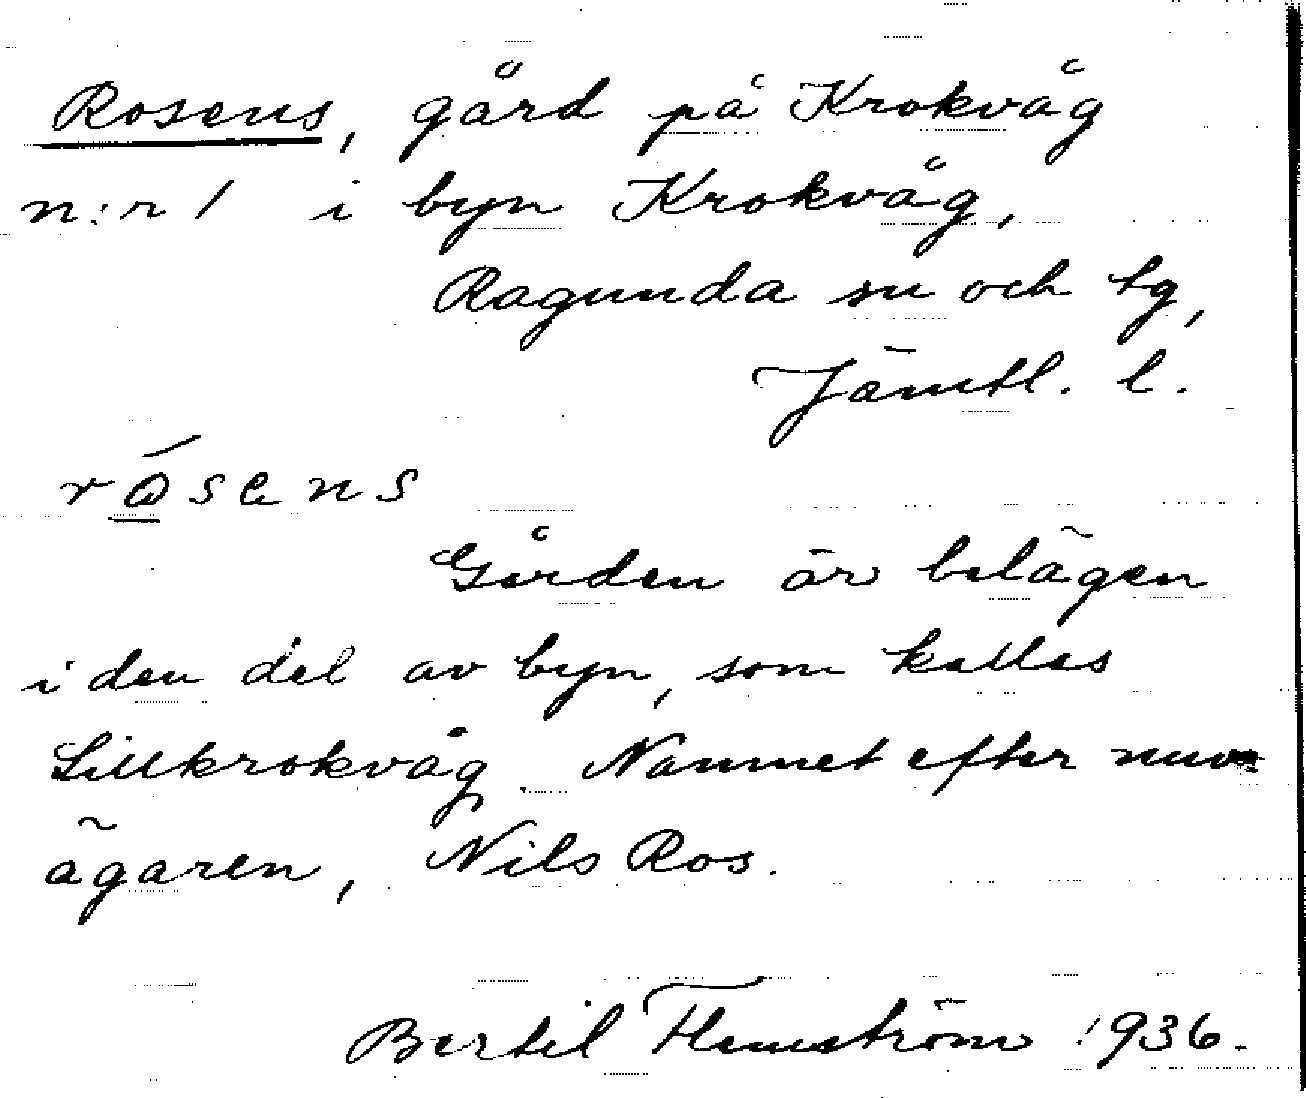 Rosens, gård på Krokvåg
n:r 1 i byn Krokvåg,
Ragunda sn och tg,
Jämtl. l.
rósens
Gården är belägen
i den del av byn, som kallas
Lillkrokvåg. Namnet efter nuv.
ägaren, Nils Ros.
Bertil Flemström 1936.